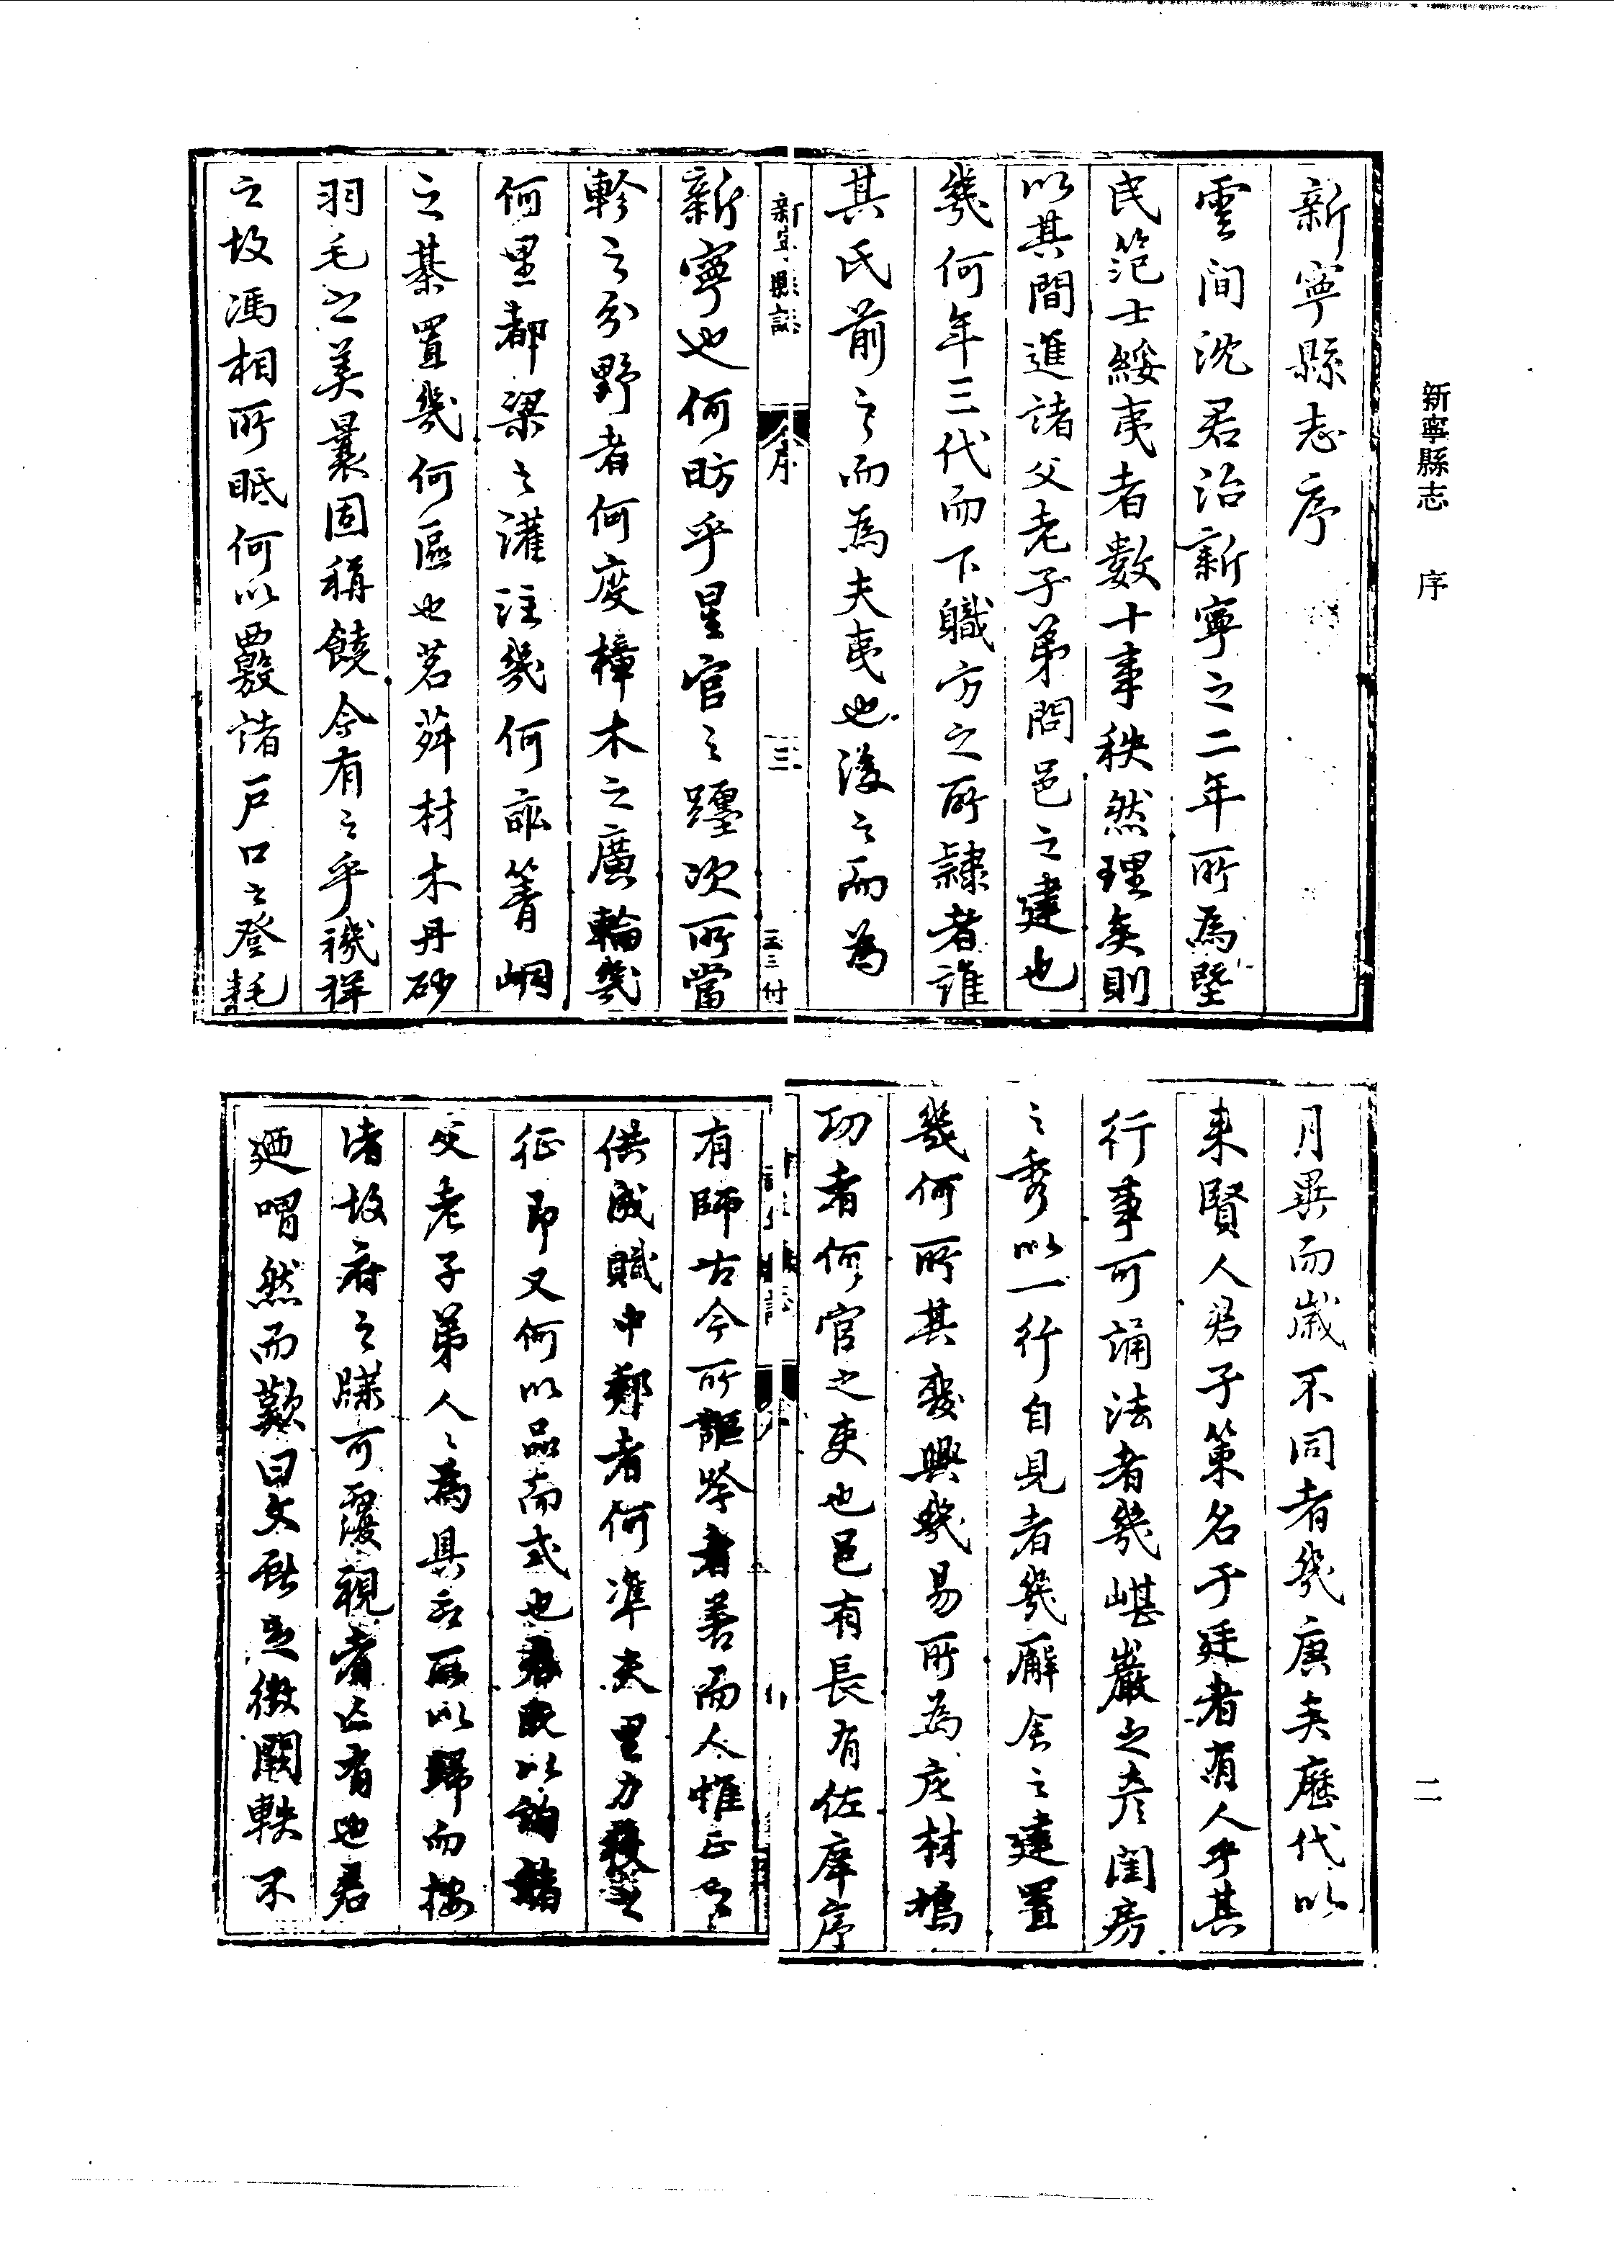 新寧縣志 序
新寧縣志序
雲间沈君治新寧之二年所為墾
民范士綏夷者數十事秩然理矣則
以其間進諸父老子弟問邑之建也
幾何年三代而下職方之所隸者誰
其氏前之而為夫夷也後之而為
新寧縣誌
序
三
新寧也何昉乎星官之躔次所當
軫之分野者何度樟木之廣輪幾
何里都梁之灌注幾何畝箐峒
之綦置幾何區也茗荈材木丹砂
羽毛之美曩固稱饒今有之乎禨祥
之故馮相所眂何以覈諸户口之登耗
二
月異而歲不同者幾庚矣歷代以
来賢人君子策名于廷者有人乎其
行事可誦法者幾嵁巖之彦閨房
之秀以一行自見者幾廨舍之建置
幾何所其变興幾易所為庀材鳩
功者何官之吏也邑有長有佐庠序
有師古今所謳 者善而人惟
供賦中鄰者何準夫里力
征即又何以品而式也君以諸
父老子弟人〻為具言所以歸而按
諸故府之牒可覆視者亡有也君
廼喟然而歎曰文 足徵闕軼不